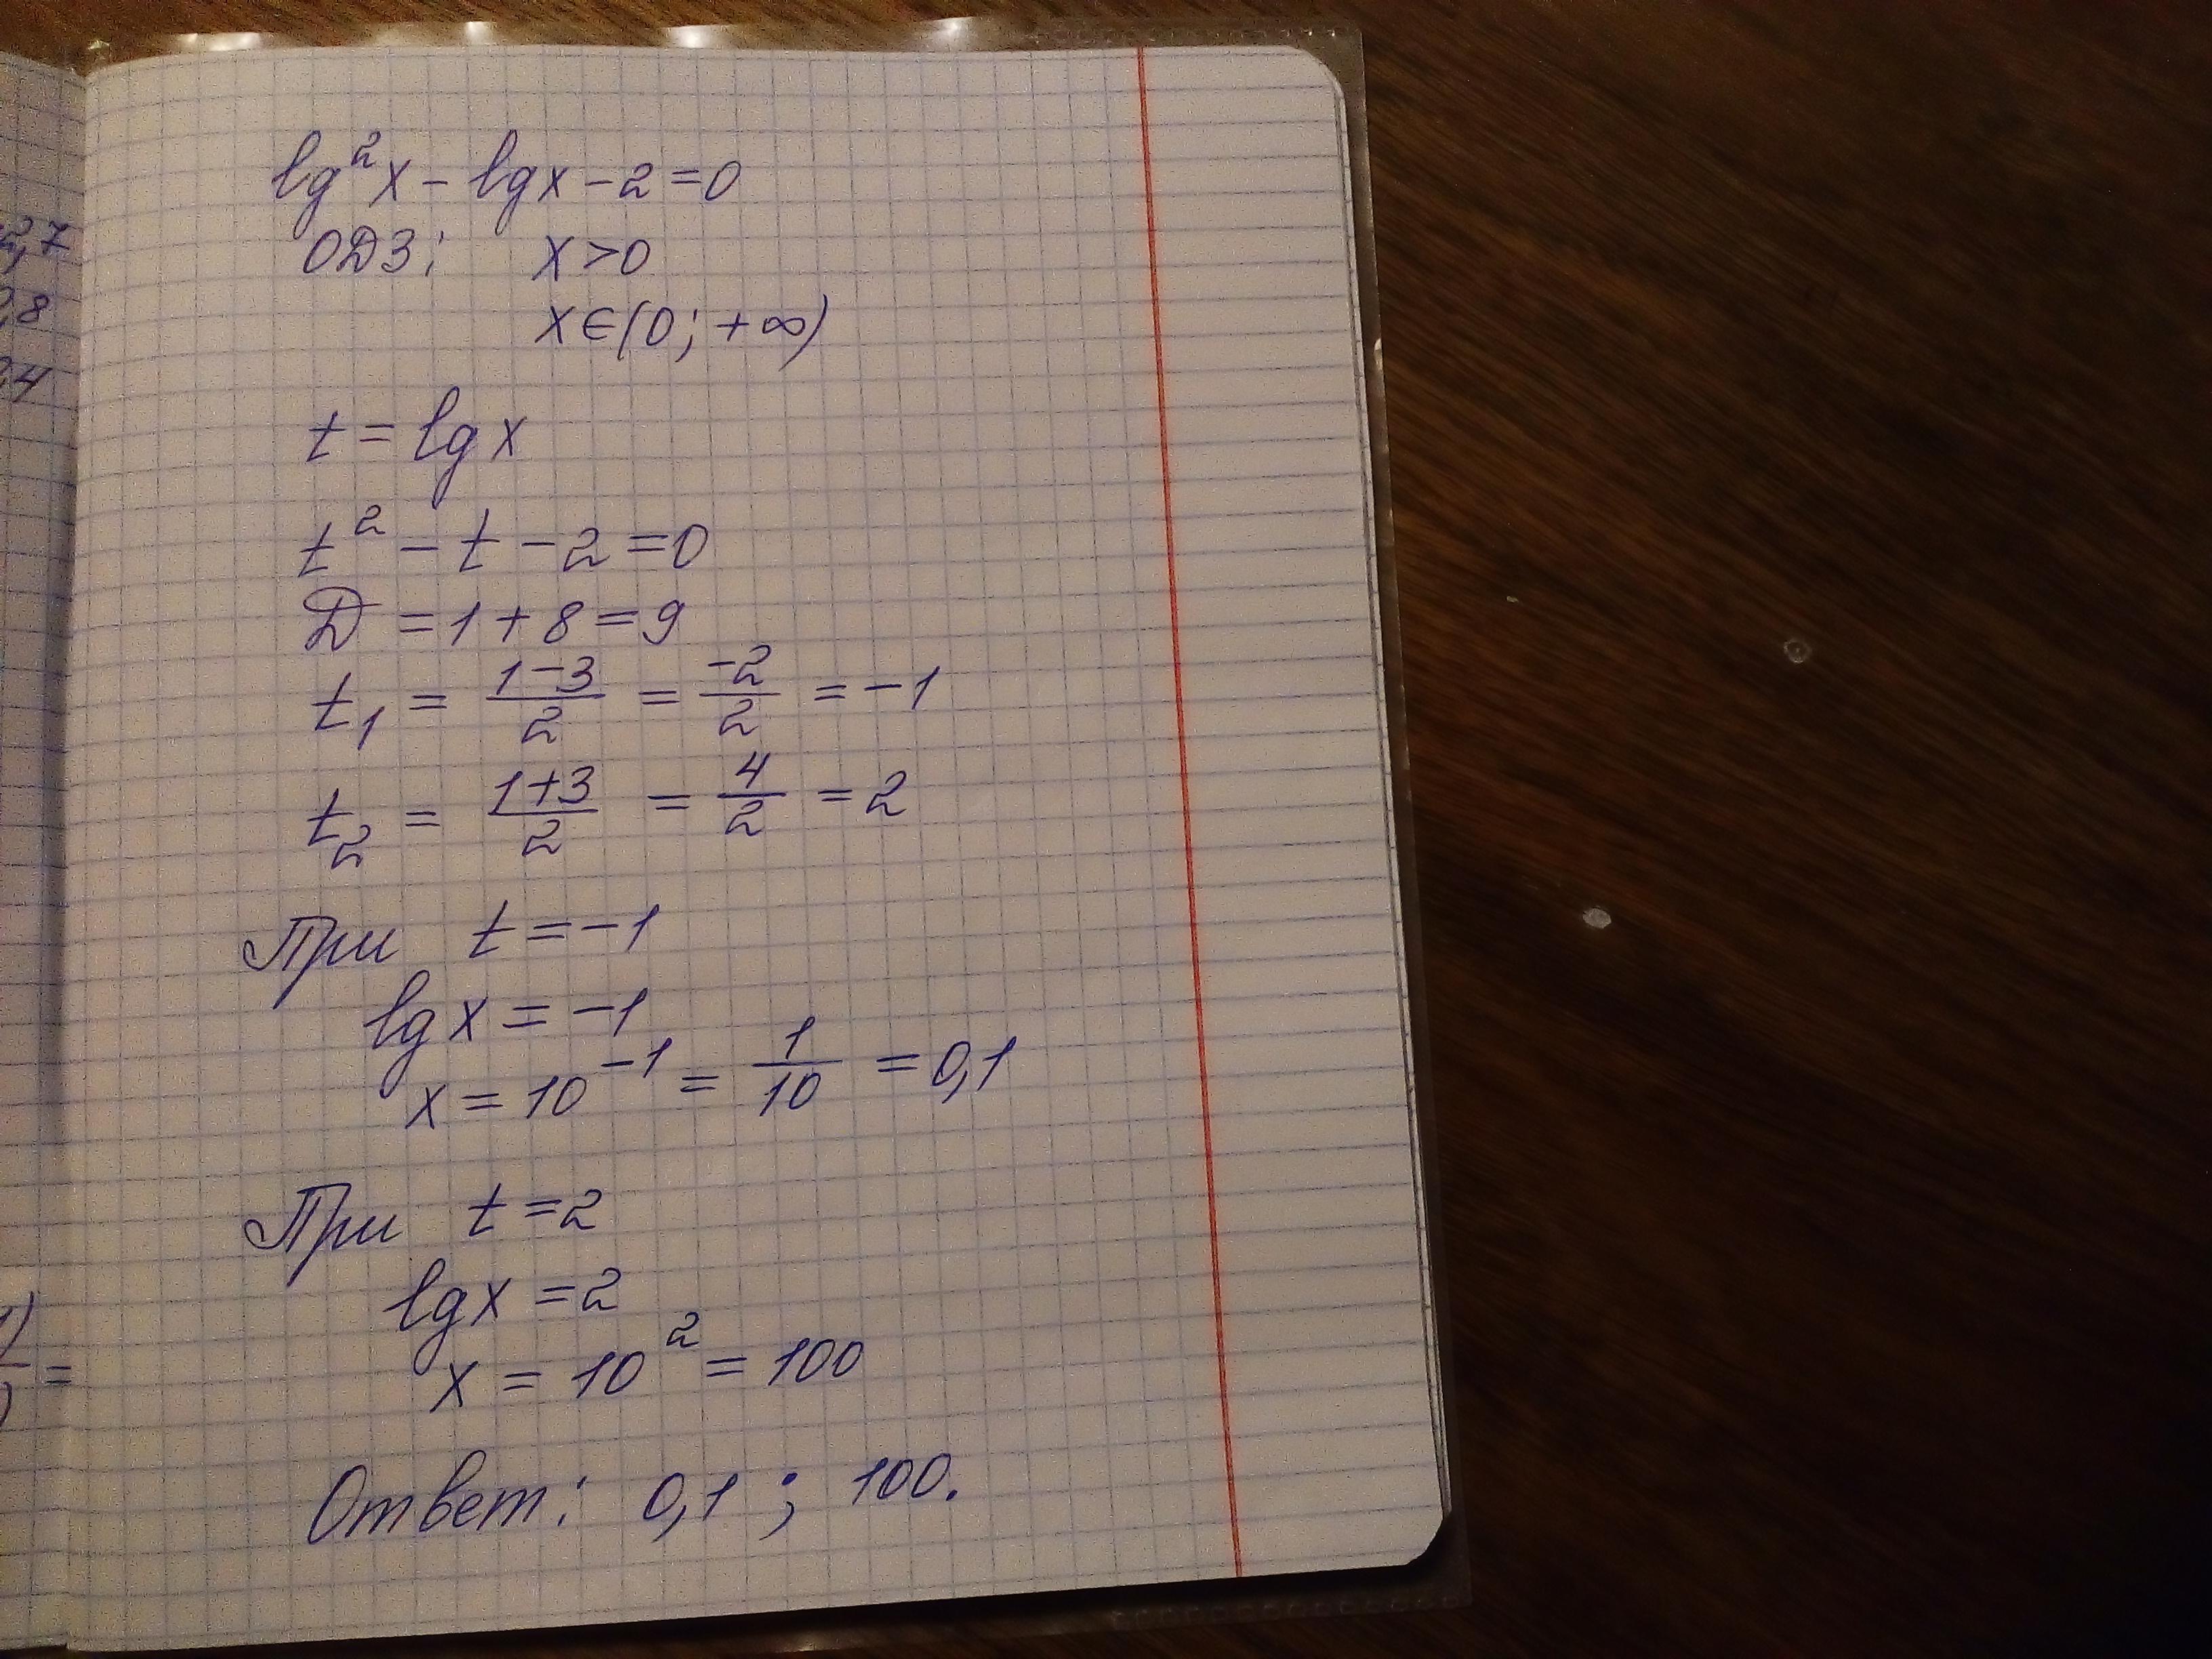 lg²x − lgx − 2 = 0
ОДЗ: x > 0
x ∈ (0; +∞)
t = lg x
t² − t − 2 = 0
Д = 1 + 8 = 9
t₁ = (1−3)/2 = −2/2 = −1
t₂ = (1+3)/2 = 4/2 = 2
При t = −1
lg x = −1
x = 10⁻¹ = 1/10 = 0,1
При t = 2
lg x = 2
x = 10² = 100
Ответ: 0,1 ; 100.